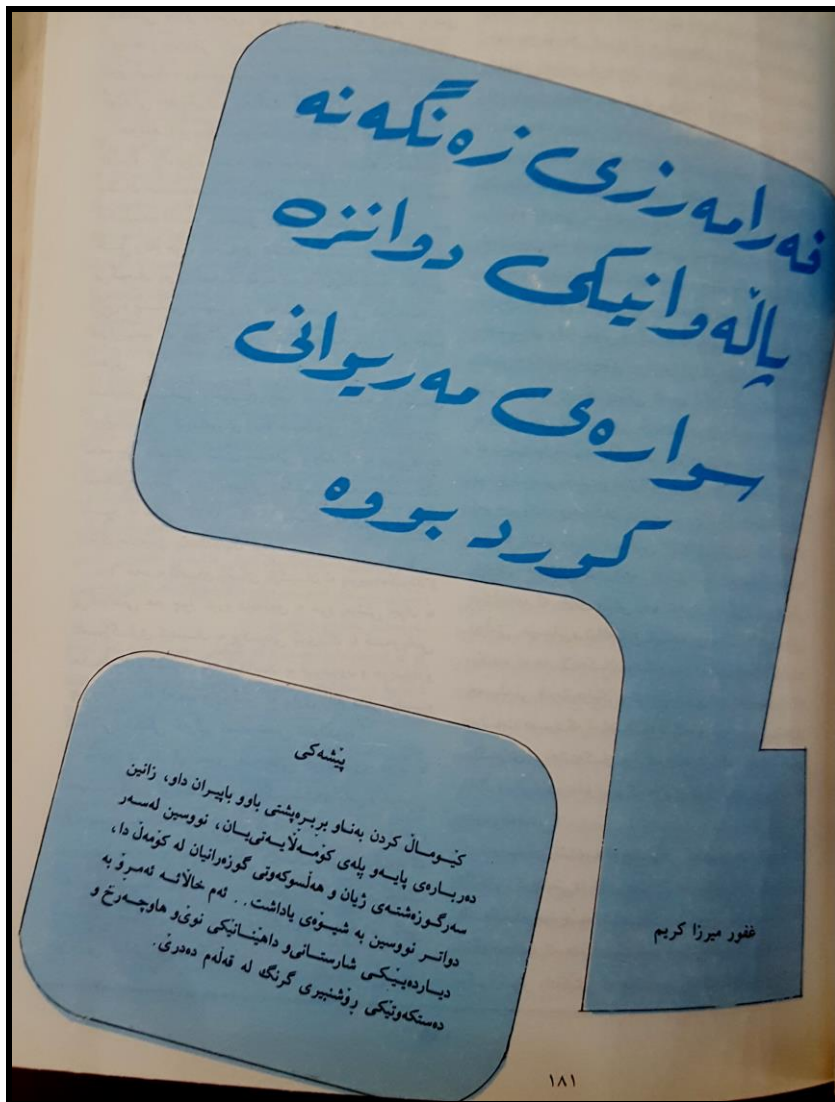 فەرامەرزی زەنگەنە
پاڵەوانیکی دوانزە
سوارەی مەریوانی
کورد بووە
غفور میرزا کریم
پێشەکی
کێومـاڵ کردن بەنـاو بڕبـڕەپشتی باوو باپیـران داو، زانین
دەربـارەی پایـەو پلەی کۆمـەڵایـەتی‌یـان، نووسین لەسـەر
سەرگـوزەشتـەی ژیان و هەڵسوکەوتی گوزەرانیان لە کۆمەڵ دا،
دواتـر نووسین بە شیـوەی یاداشت.. ئەم خاڵانـە ئەمـرۆ بە
دیـاردەیـێکـی شارستـانی‌و داهێنـانێکی نوێ‌و هاوچـەرخ و
دەستکەوتێکی ڕۆشنبیری گرنگ لە قەڵەم دەدرێ.
١٨١